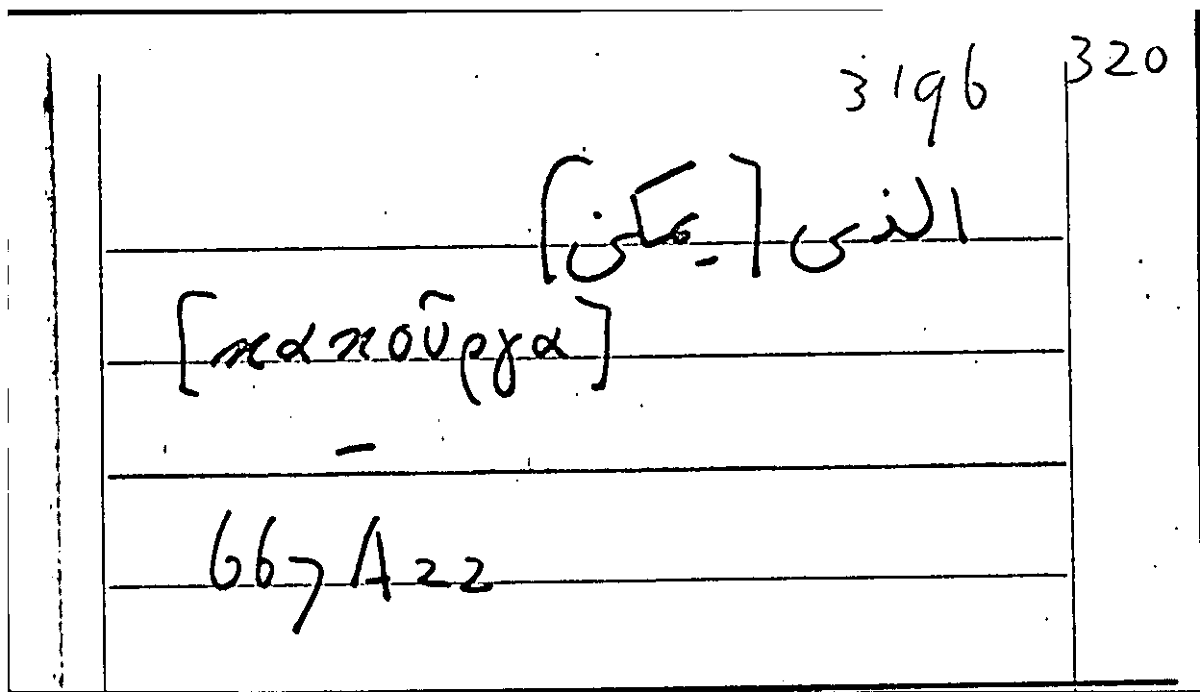 3196 320
الذى [يمكن]
[κακοῦργα]
–
667 A 22